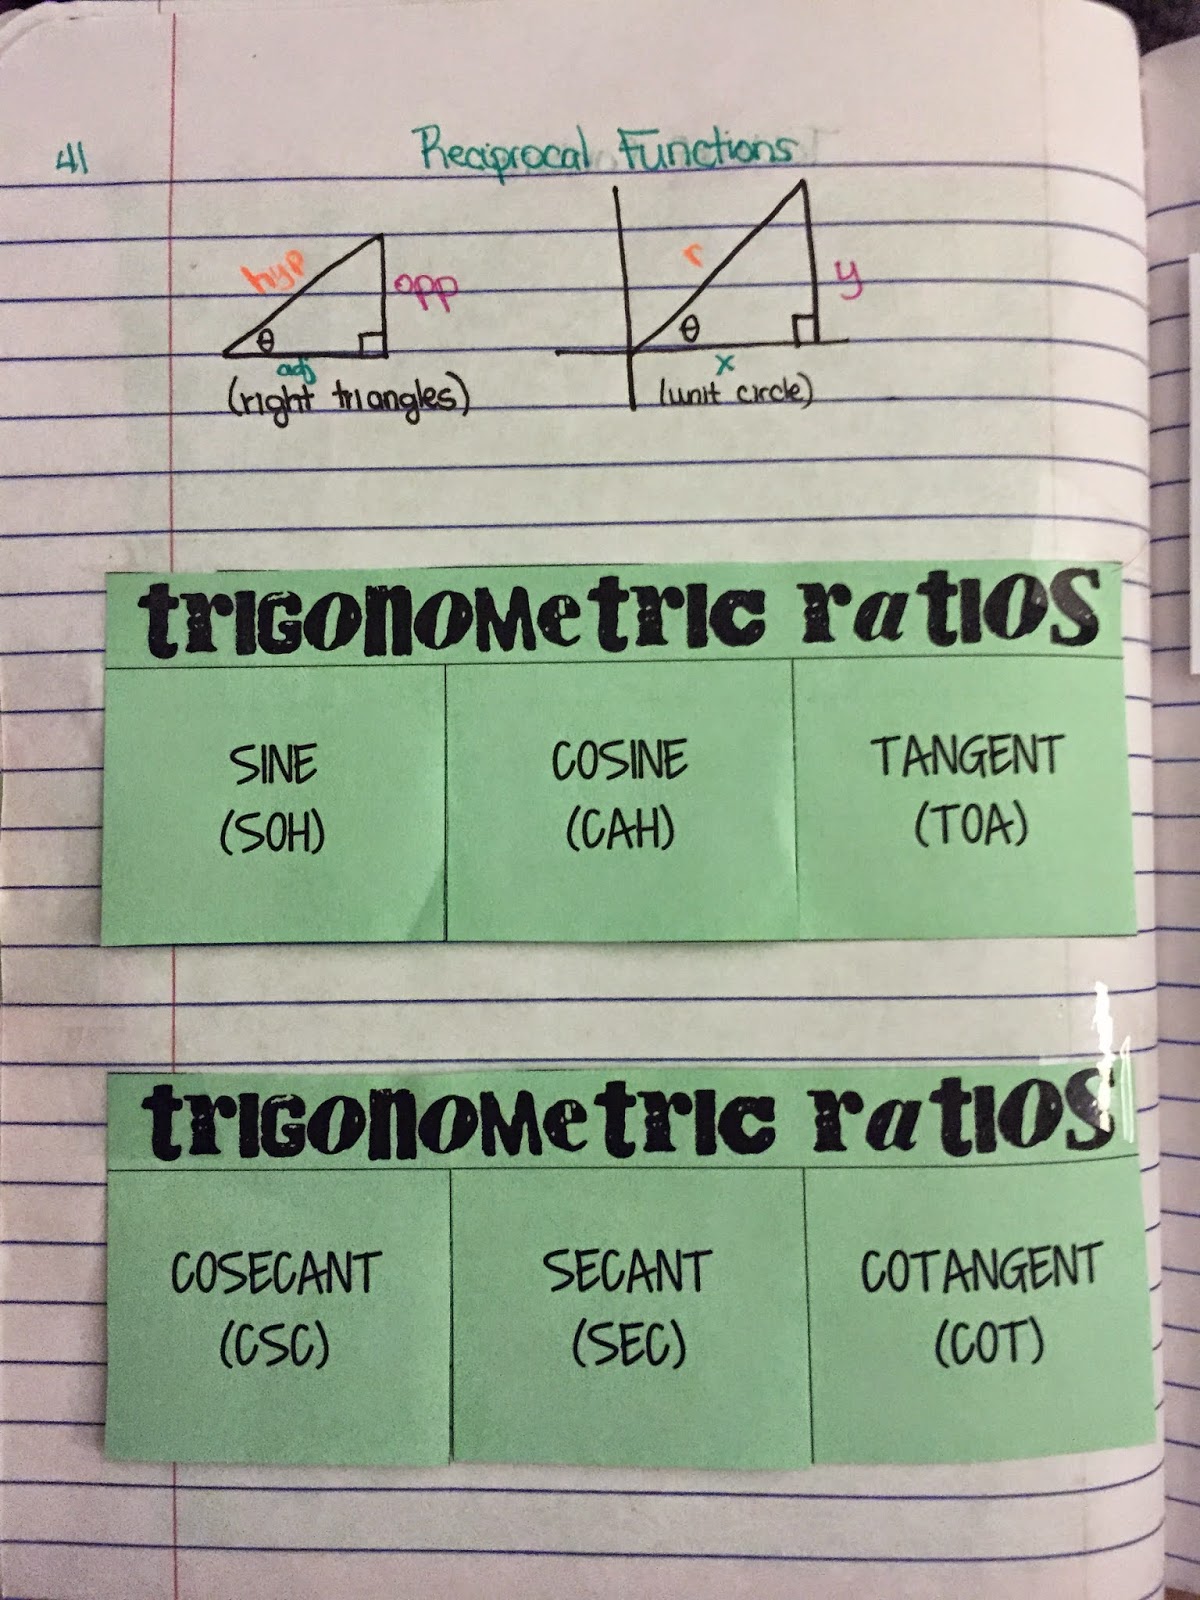 41
Reciprocal Functions
hyp
opp
θ
adj
(right triangles)
r
y
θ
x
(unit circle)
trigonometric ratios
SINE
(SOH)
COSINE
(CAH)
TANGENT
(TOA)
trigonometric ratios
COSECANT
(CSC)
SECANT
(SEC)
COTANGENT
(COT)